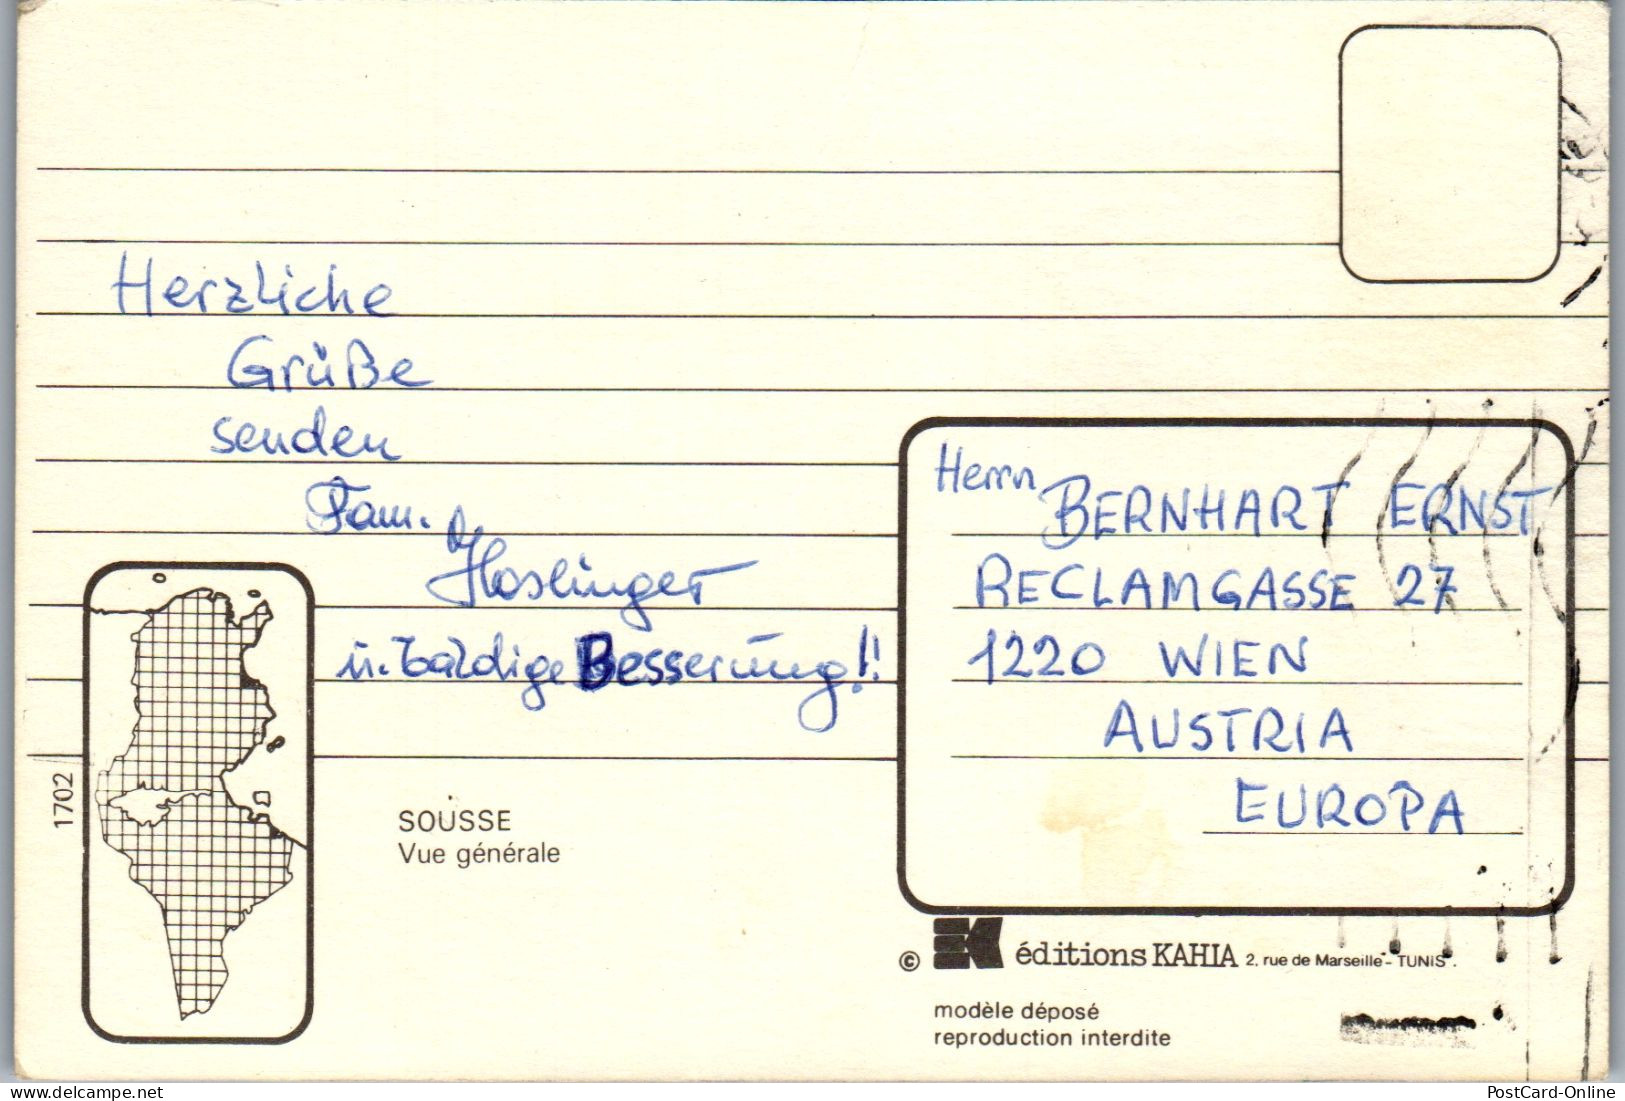 Herzliche
Grüße
senden
Fam.
Haslinger
u. baldige Besserung!!
Herrn BERNHART ERNST
RECLAMGASSE 27
1220 WIEN
AUSTRIA
EUROPA
1702
SOUSSE
Vue générale
© éditions KAHIA 2, rue de Marseille - TUNIS.
modèle déposé
reproduction interdite
www.delcampe.net
PostCard-Online